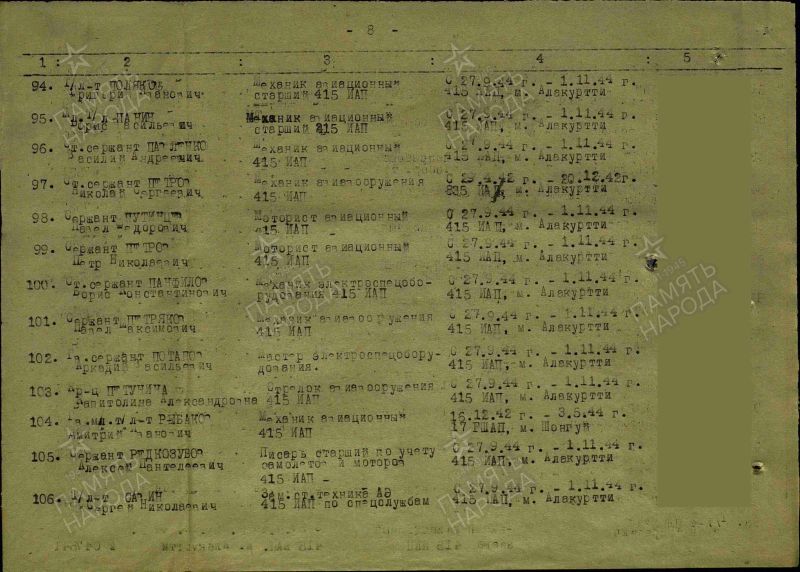 - 8 -
1 : 2 : 3 : 4 : 5
94. т/л-т ПОЛЯКОВ Механик авиационный С 27.9.44 г. - 1.11.44 г.
Григорий Иванович старший 415 ИАП 415 ИАП, м. Алакуртти
95. Мл.т/л ПАНИН Механик авиационный С 27.9.44 г. - 1.11.44 г.
Борис Васильевич старший 415 ИАП 415 ИАП, м. Алакуртти
96. Ст.сержант ПАВЛЕНКО Механик авиационный С 27.9.44 г. - 1.11.44 г.
Василий Андреевич 415 ИАП 415 ИАП, м. Алакуртти
97. Ст.сержант ПЕТРОВ Механик авиавооружения С 29.4.42 - 20.12.42г.
Николай Сергеевич 415 ИАП 835 ИАП, м. Алакуртти
98. Сержант Моторист авиационный С 27.9.44 г. - 1.11.44 г.
Павел Федорович 415 ИАП 415 ИАП, м. Алакуртти
99. Сержант ПЕТРОВ Моторист авиационный С 27.9.44 г. - 1.11.44 г.
Петр Николаевич 415 ИАП 415 ИАП, м. Алакуртти
100. Ст.сержант ПАНФИЛОВ Механик электроспецобо- С 27.9.44 г. - 1.11.44 г.
Борис Константинович рудования 415 ИАП 415 ИАП, м. Алакуртти
101. Сержант ПЕТРЯКОВ Механик авиавооружения С 27.9.44 г. - 1.11.44 г.
Павел Максимович 415 ИАП 415 ИАП, м. Алакуртти
102. Гв.сержант ПОТАПОВ Мастер электроспецобору- С 27.9.44 г. - 1.11.44 г.
Аркадий Васильевич дования. 415 ИАП, м. Алакуртти
103. Кр-ц ПЕТУНИНА Стрелок авиавооружения С 27.9.44 г. - 1.11.44 г.
Капитолина Александровна 415 ИАП 415 ИАП, м. Алакуртти
104. Гв.мл.т/л-т РЫБАКОВ Механик авиационный 16.12.42 г. - 3.5.44 г.
Дмитрий Иванович 415 ИАП 17 ГШАП, м. Шонгуй
105. Сержант РЕДКОЗУБОВ Писарь старший по учету С 27.9.44 г. - 1.11.44 г.
Алексей Пантелеевич самолетов и моторов 415 ИАП, м. Алакуртти
415 ИАП -
106. т/л-т Зам.ст.техника АЭ С 27.9.44 г. - 1.11.44 г.
Сергей Николаевич 415 ИАП по спецслужбам 415 ИАП, м. Алакуртти
ПАМЯТЬ НАРОДА